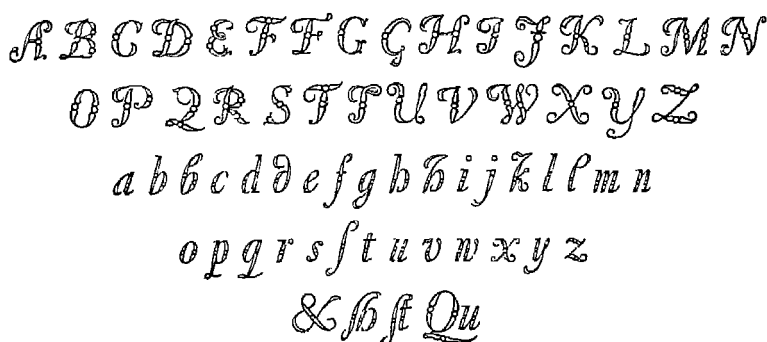 A B C D E F F G G H I J K L M N
O P Q R S T T U V W X Y Z
a b b c d d e f g h h i j k l l m n
o p q r s ſ t u v w x y z
& ſb ſt Qu